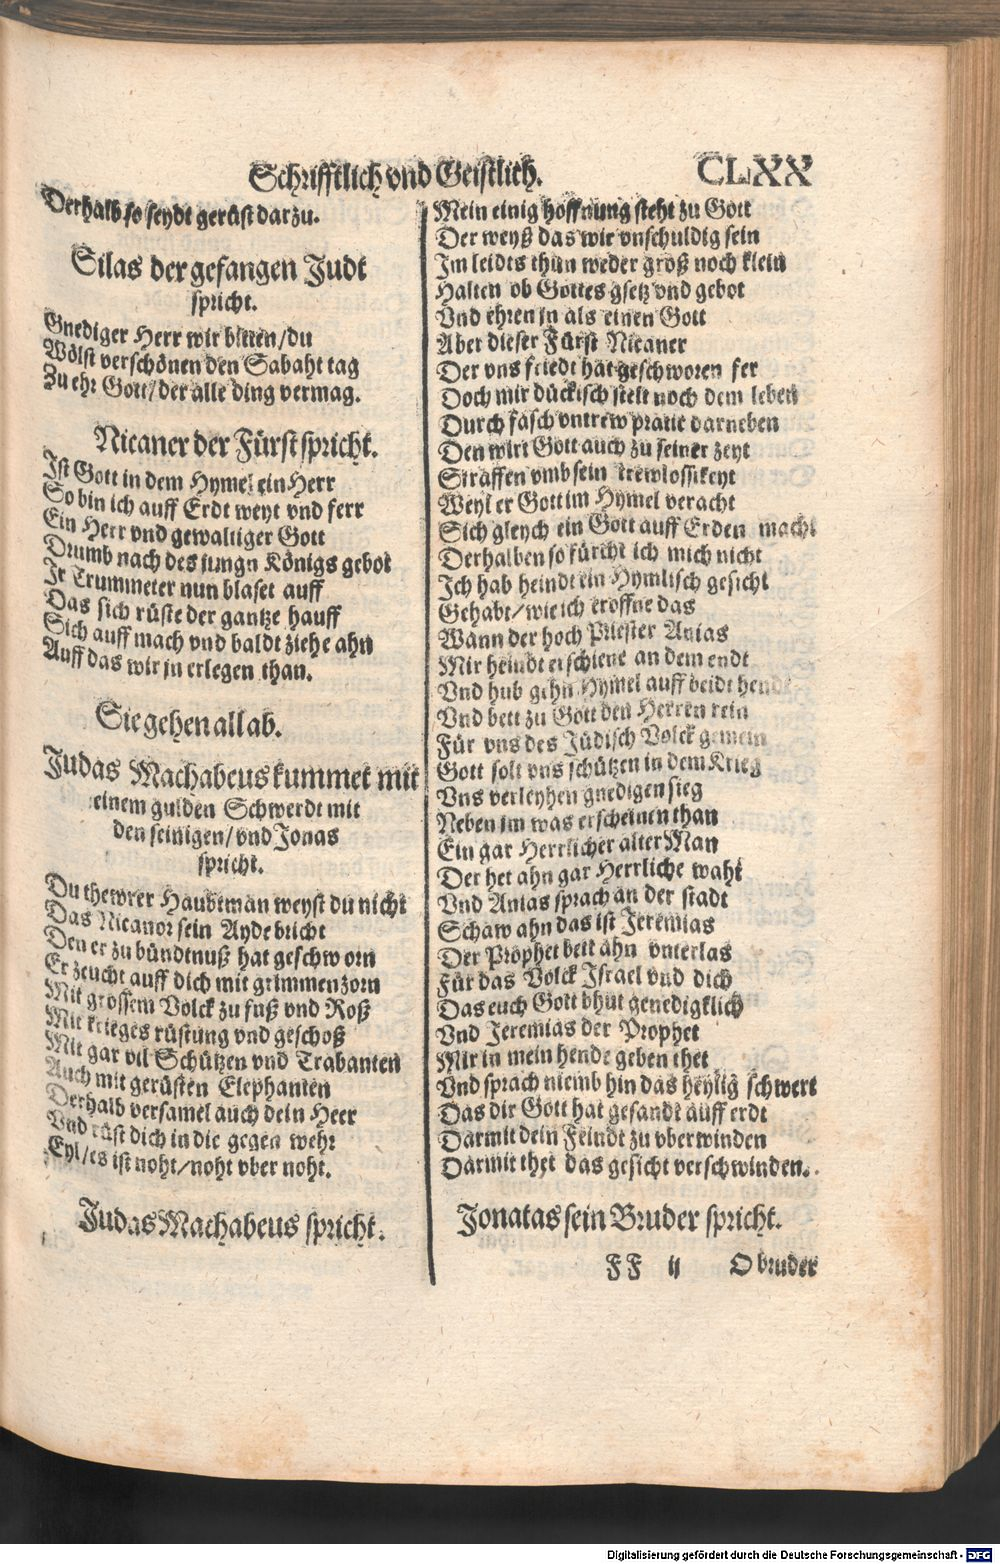 Schrifftlich vnd Geistlich. CLXX
Derhalb so seydt gerüst darzu.
Silas der gefangen Judt
spricht.
Gnediger Herr wir bitten/du
Wölst verschönen den Sabaht tag
Zu ehr Gott/der alle ding vermag.
Nicaner der Fürst spricht.
Ist Gott in dem Hymel ein Herr
So bin ich auff Erdt weyt vnd ferr
Ein Herr vnd gewaltiger Gott
Drumb nach des jungn Königs gebot
Ir Trummeter nun blaset auff
Das sich rüste der gantze hauff
Sich auff mach vnd baldt ziehe ahn
Auff das wir jn erlegen than.
Sie gehen all ab.
Judas Machabeus kummet mit
einem gulden Schwerdt mit
den seinigen/vnd Jonas
spricht.
Du thewrer Haubtman weyst du nicht
Das Nicanor sein Ayde bricht
Den er zu bündtnuß hat geschworn
Er zeucht auff dich mit grimmen zorn
Mit grossem Volck zu fuß vnd Roß
Mit krieges rüstung vnd geschoß
Mit gar vil Schützen vnd Trabanten
Auch mit gerüsten Elephanten
Derhalb versamel auch dein Heer
Vnd rüst dich in die gegen wehr
Eyl/es ist noht/noht vber noht.
Judas Machabeus spricht.
Mein einig hoffnung steht zu Gott
Der weyß das wir vnschuldig sein
Im leidts thun weder groß noch klein
Halten ob Gottes gsetz vnd gebot
Vnd ehren jn als einen Gott
Aber dieser Fürst Nicaner
Der vns friedt hat geschworen fer
Doch mir dückisch stelt noch dem leben
Durch falsch vntrew pratic darneben
Den wirt Gott auch zu seiner zeyt
Straffen vmb sein trewlossikeyt
Weyl er Gott im Hymel veracht
Sich gleych ein Gott auff Erden macht
Derhalben so fürcht ich mich nicht
Ich hab heindt ein Hymlisch gesicht
Gehabt/wie ich eroffne das
Wann der hoch Priester Anias
Mir heindt erschiene an dem endt
Vnd hub gehn Hymel auff beidt hendt
Vnd bett zu Gott den Herren rein
Für vns des Jüdisch Volck gemein
Gott solt vns schützen in dem Krieg
Vns verleyhen gnedigen sieg
Neben im was erscheinen than
Ein gar Herrlicher alter Man
Der het ahn gar Herrliche waht
Vnd Anias sprach an der stadt
Schaw ahn das ist Jeremias
Der Prophet bett ahn vnterlas
Für das Volck Israel vnd dich
Das euch Gott bhut genedigklich
Vnd Jeremias der Prophet
Mir in mein hende geben thet
Vnd sprach niemb hin das heylig schwert
Das dir Gott hat gesandt auff erdt
Darmit dein Feindt zu vberwinden
Darmit thet das gesicht verschwinden.
Jonatas sein Bruder spricht.
FF ij O bruder
Digitalisierung gefördert durch die Deutsche Forschungsgemeinschaft - DFG